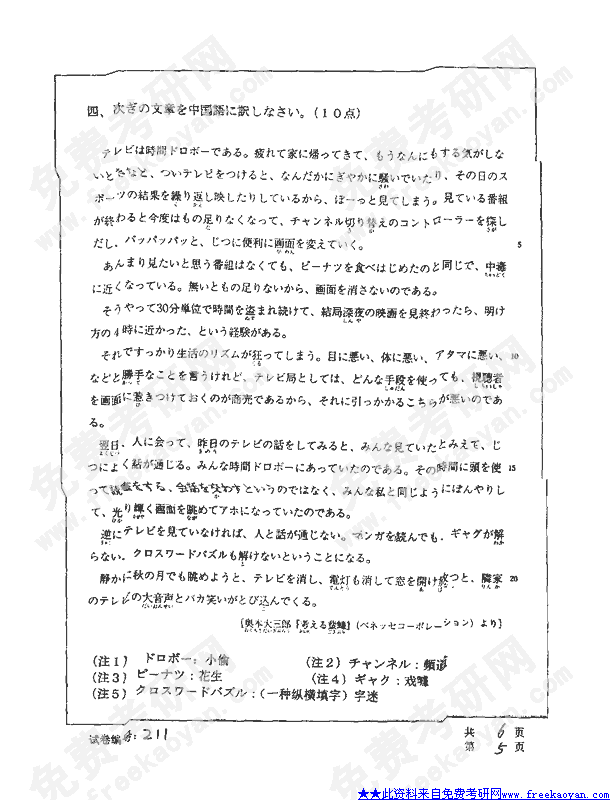 四、次ぎの文章を中国語に訳しなさい。(10点)
テレビは時間ドロボーである。疲れて家に帰ってきて、もうなんにもする気がしな
いときなど、ついテレビをつけると、なんだかにぎやかに騒いでいたり、その日のス
ポーツの結果を繰り返し映したりしているから、ぼーっと見てしまう。見ている番組
が終わると今度はもの足りなくなって、チャンネル切り替えのコントローラーを探し
だし、パッパッパッと、じつに便利に画面を変えていく。 5
あんまり見たいと思う番組はなくても、ピーナツを食べはじめたのと同じで、中毒
に近くなっている。無いともの足りないから、画面を消さないのである。
そうやって30分単位で時間を盗まれ続けて、結局深夜の映画を見終わったら、明け
方の4時に近かった、という経験がある。
それですっかり生活のリズムが狂ってしまう。目に悪い、体に悪い、アタマに悪い、 10
などと勝手なことを言うけれど、テレビ局としては、どんな手段を使っても、視聴者
を画面に惹きつけておくのが商売であるから、それに引っかかるこちらが悪いのであ
る。
翌日、人に会って、昨日のテレビの話をしてみると、みんな見ていたとみえて、じ
つによく話が通じる。みんな時間ドロボーにあっていたのである。その時間に頭を使 15
って読書をする、会話をかわすというのではなく、みんな私と同じようにぼんやりし
て、光り輝く画面を眺めてアホになっていたのである。
逆にテレビを見ていなければ、人と話が通じない。マンガを読んでも、ギャグが解
らない。クロスワードパズルも解けないということになる。
静かに秋の月でも眺めようと、テレビを消し、電灯も消して窓を開け放つと、隣家 20
のテレビの大音声とバカ笑いがとび込んでくる。
[奥本大三郎『考える蟋蟀』(ベネッセコーポレーション) より]
(注1) ドロボー：小偷 (注2) チャンネル：频道
(注3) ピーナツ：花生 (注4) ギャク：戏谑
(注5) クロスワードパズル：(一种纵横填字) 字迷
试卷编号：211 共 6 页
第 5 页
免费考研网
www.freekaoyan.com
★★此资料来自免费考研网 www.freekaoyan.com